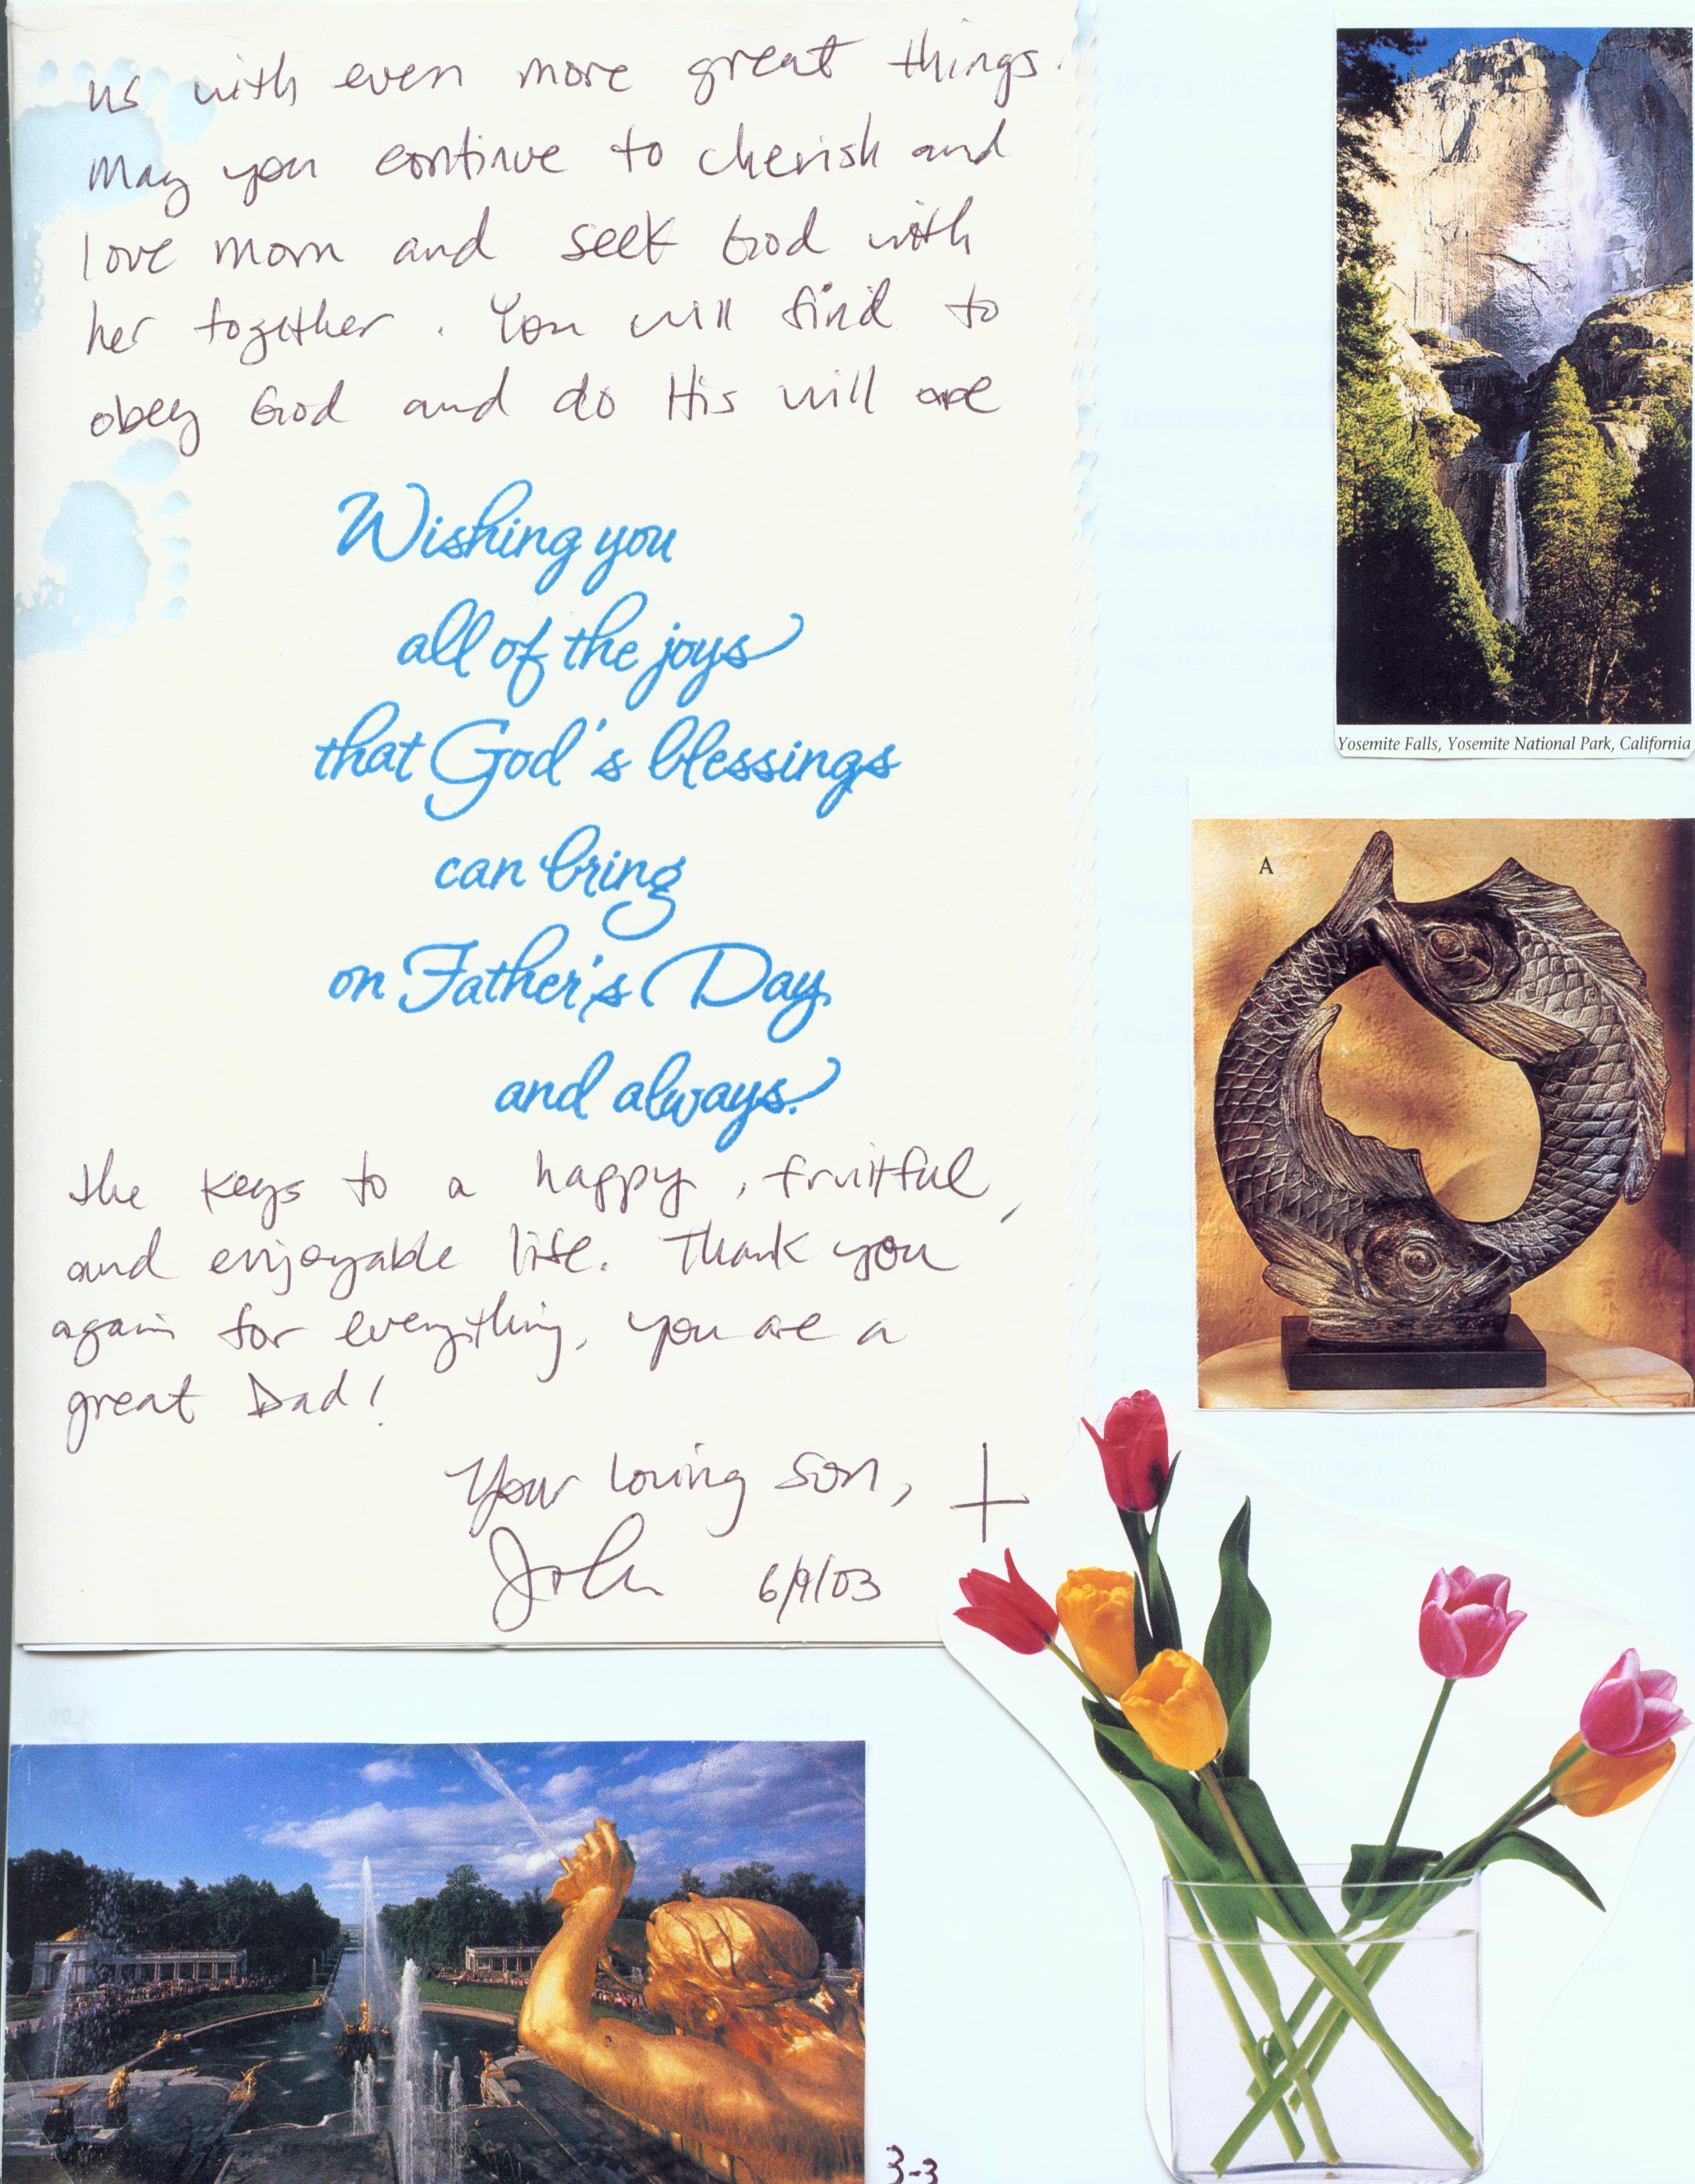 us with even more great things.
May you continue to cherish and
love mom and seek God with
her together. You will find to
obey God and do His will are
Wishing you
all of the joys
that God's blessings
can bring
on Father's Day
and always.
the keys to a happy, fruitful,
and enjoyable life. Thank you
again for everything, you are a
great Dad!
Your loving son,
John 6/9/03
Yosemite Falls, Yosemite National Park, California
A